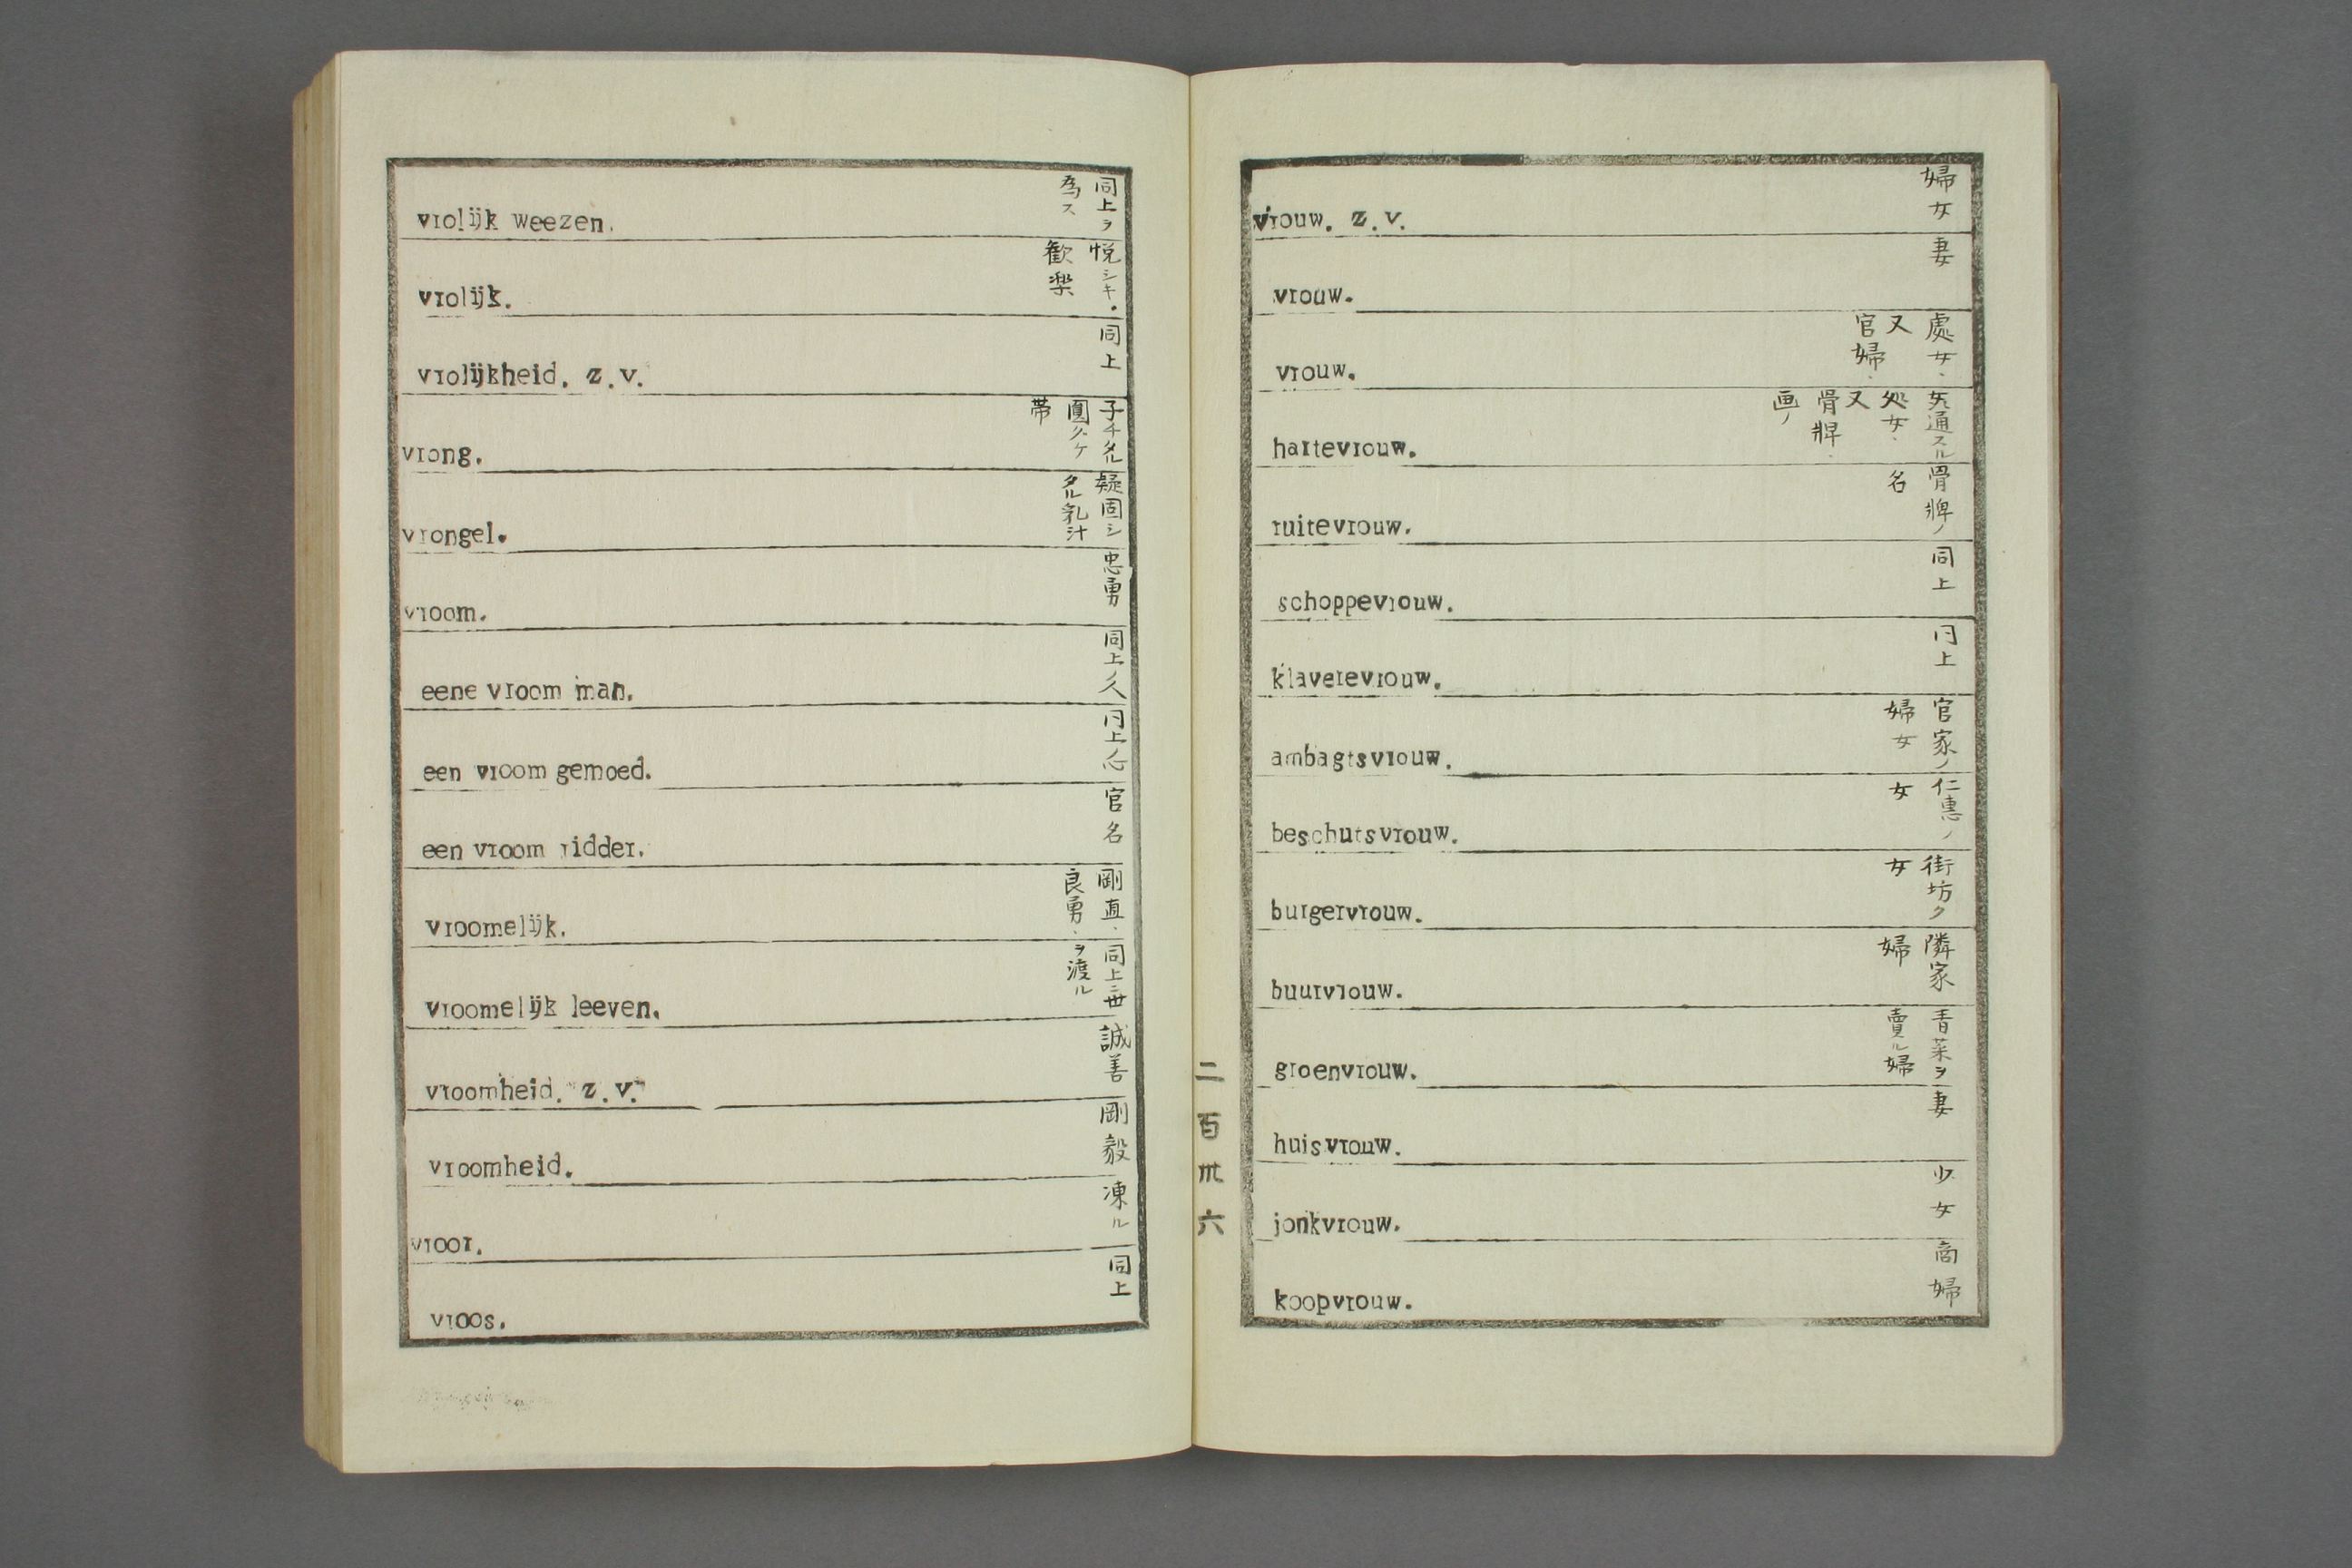 vrolijk weezen.
同上ヲ
為ス
vrolijk.
悦シキ.
歓楽
vrolijkheid. z.v.
同上
vrong.
子チタル
圓クケ
帯
vrongel.
凝固シ
タル乳汁
vroom.
忠勇
eene vroom man.
同上ノ人
een vroom gemoed.
同上ノ心
een vroom ridder.
官名
vroomelijk.
剛直.
良勇.
vroomelijk leeven.
同上ニ世
ヲ渡ル
vroomheid. z.v.
誠善
vroomheid.
剛毅
vroor.
凍ル
vroos.
同上
二百卅六
vrouw. z.v.
婦女
vrouw.
妻
vrouw.
處女.
又
官婦.
hartevrouw.
通スル
処女.
又
骨牌.
画ノ
ruitevrouw.
骨牌ノ
名
schoppevrouw.
同上
klaverevrouw.
同上
ambagtsvrouw.
官家ノ
婦女
beschutsvrouw.
仁惠ノ
女
burgervrouw.
街坊ク
女
buurvrouw.
隣家
婦
groenvrouw.
青菜ヲ
賣ル婦
huisvrouw.
妻
jonkvrouw.
少女
koopvrouw.
商婦